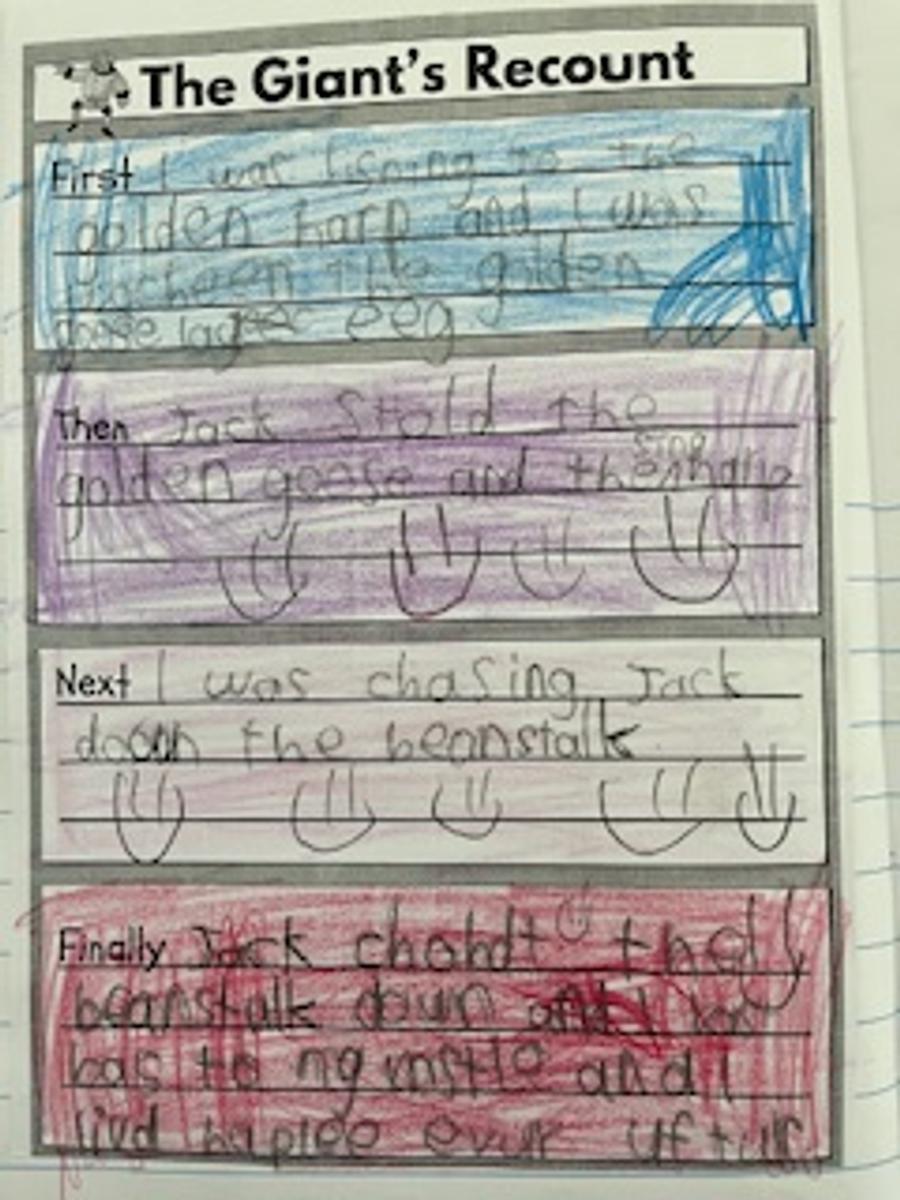 The Giant's Recount
First I was lisning to the
golden harp and I was
the golden
goose eeg
Then Jack Stold the
golden goose and the harp
sing
Next I was chasing Jack
down the beanstalk.
Finally Jack chohdt the
beanstalk down and I
has to my castle and I
livd haplee evur uftur